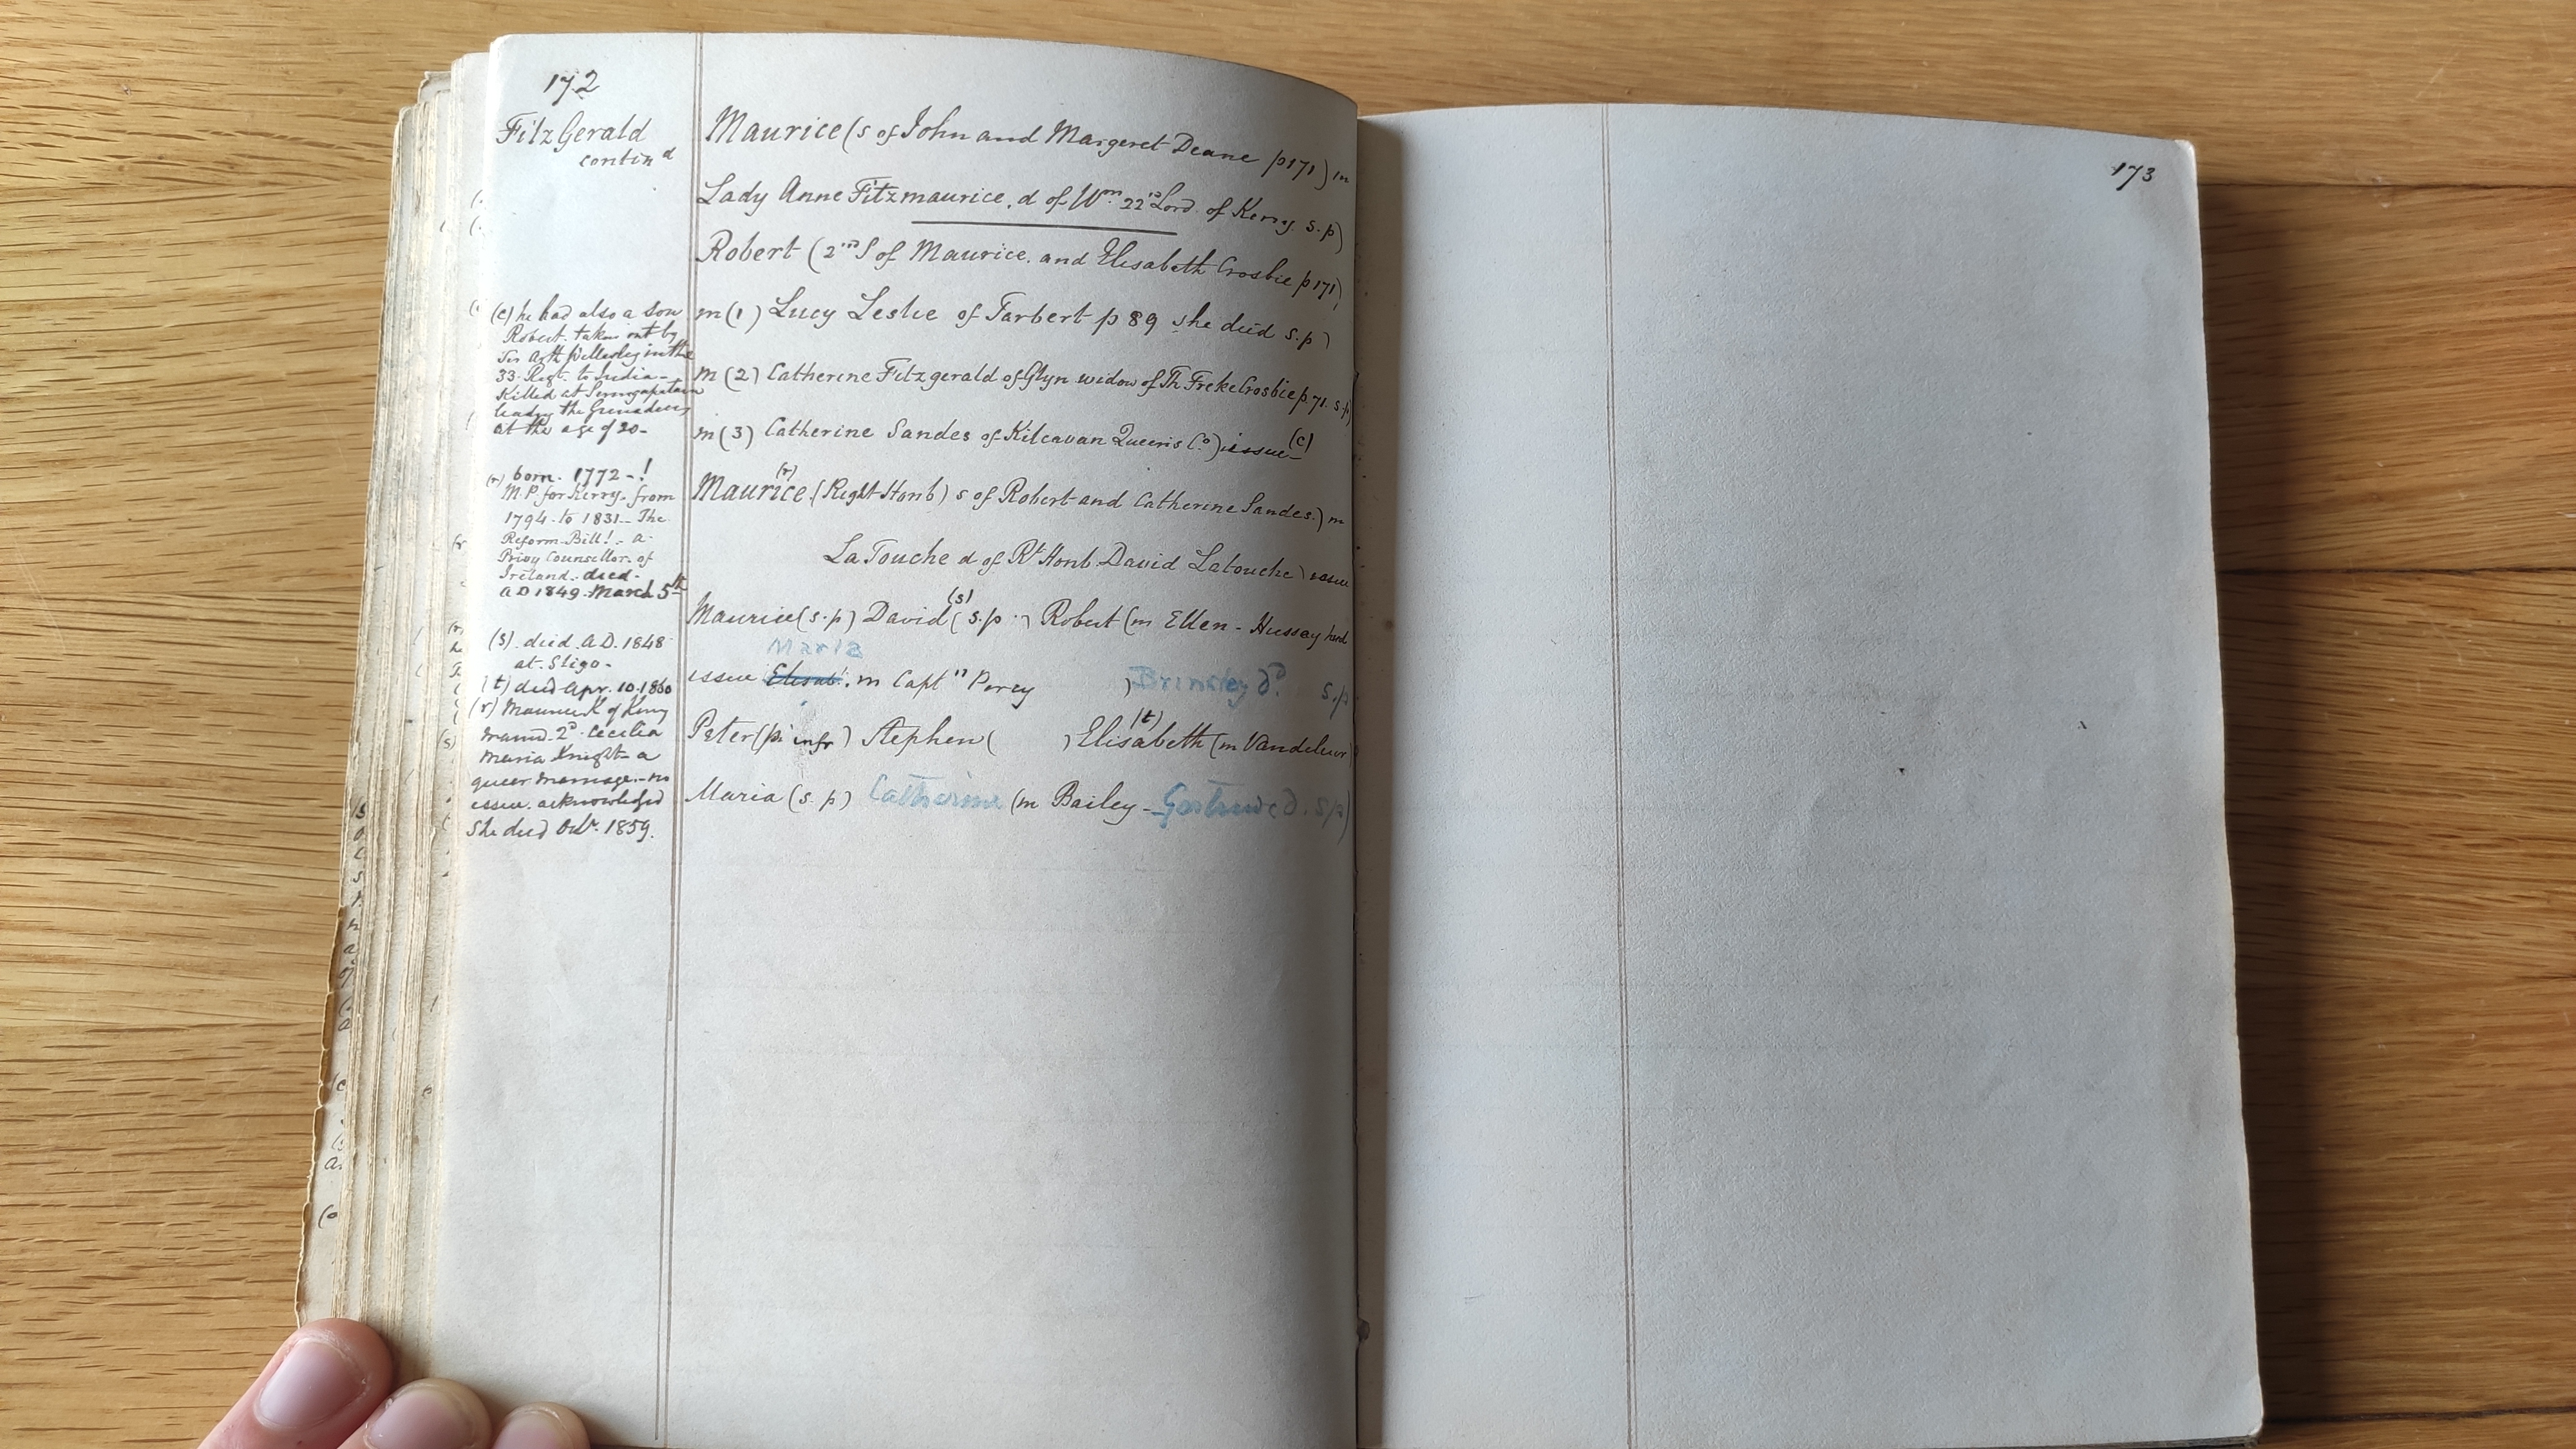 172
FitzGerald
contin^d
Maurice (s of John and Margeret Deane p171) m
Lady Anne Fitzmaurice, d of W^m. 22^nd Lord of Kerry. s.p)
Robert (2^nd S of Maurice. and Elisabeth Crosbie p171)
m (1) Lucy Leslie of Tarbert p 89 she died s.p)
m (2) Catherine Fitzgerald of Glyn widow of Th Freke Crosbie p.71. s.p)
m (3) Catherine Sandes of Kilcavan Queens C^o.) issue- (c)
(r)
Maurice (Right Honb) s of Robert and Catherine Sandes.) m
LaTouche d of R^t Honb. David Latouche) issue
(s)
Maurice (s.p) David (s.p.) Robert (m Ellen - Hussey had
Maria
issue Elisab^t. m Capt^n Percy ) Brinsley d^o. s.p
(t)
Peter (p. infr) Stephen ( ) Elisabeth (m Vandeleur)
Maria (s.p) Catherine (m Bailey - Gertrude d. s/p)
(c) he had also a son
Robert. taken out by
Sir Arth Wellesley in the
33. Regt. to India -
Killed at Seringapatam
leading the Grenadiers
at the age of 20-
(r) born. 1772 - !
M.P for Kerry. from
1794. to 1831 - The
Reform - Bill! - a
Privy Counsellor. of
Ireland. - died -
a D 1849. March 5^th
(s). died. A.D. 1848
at. Sligo -
(t) died Apr. 10. 1860
(r) Maurice K of Kerry
marrd. 2^d. Cecilia
Maria Knight - a
queer marriage. - no
issue. acknowledged
She died Oct^r. 1859.
173